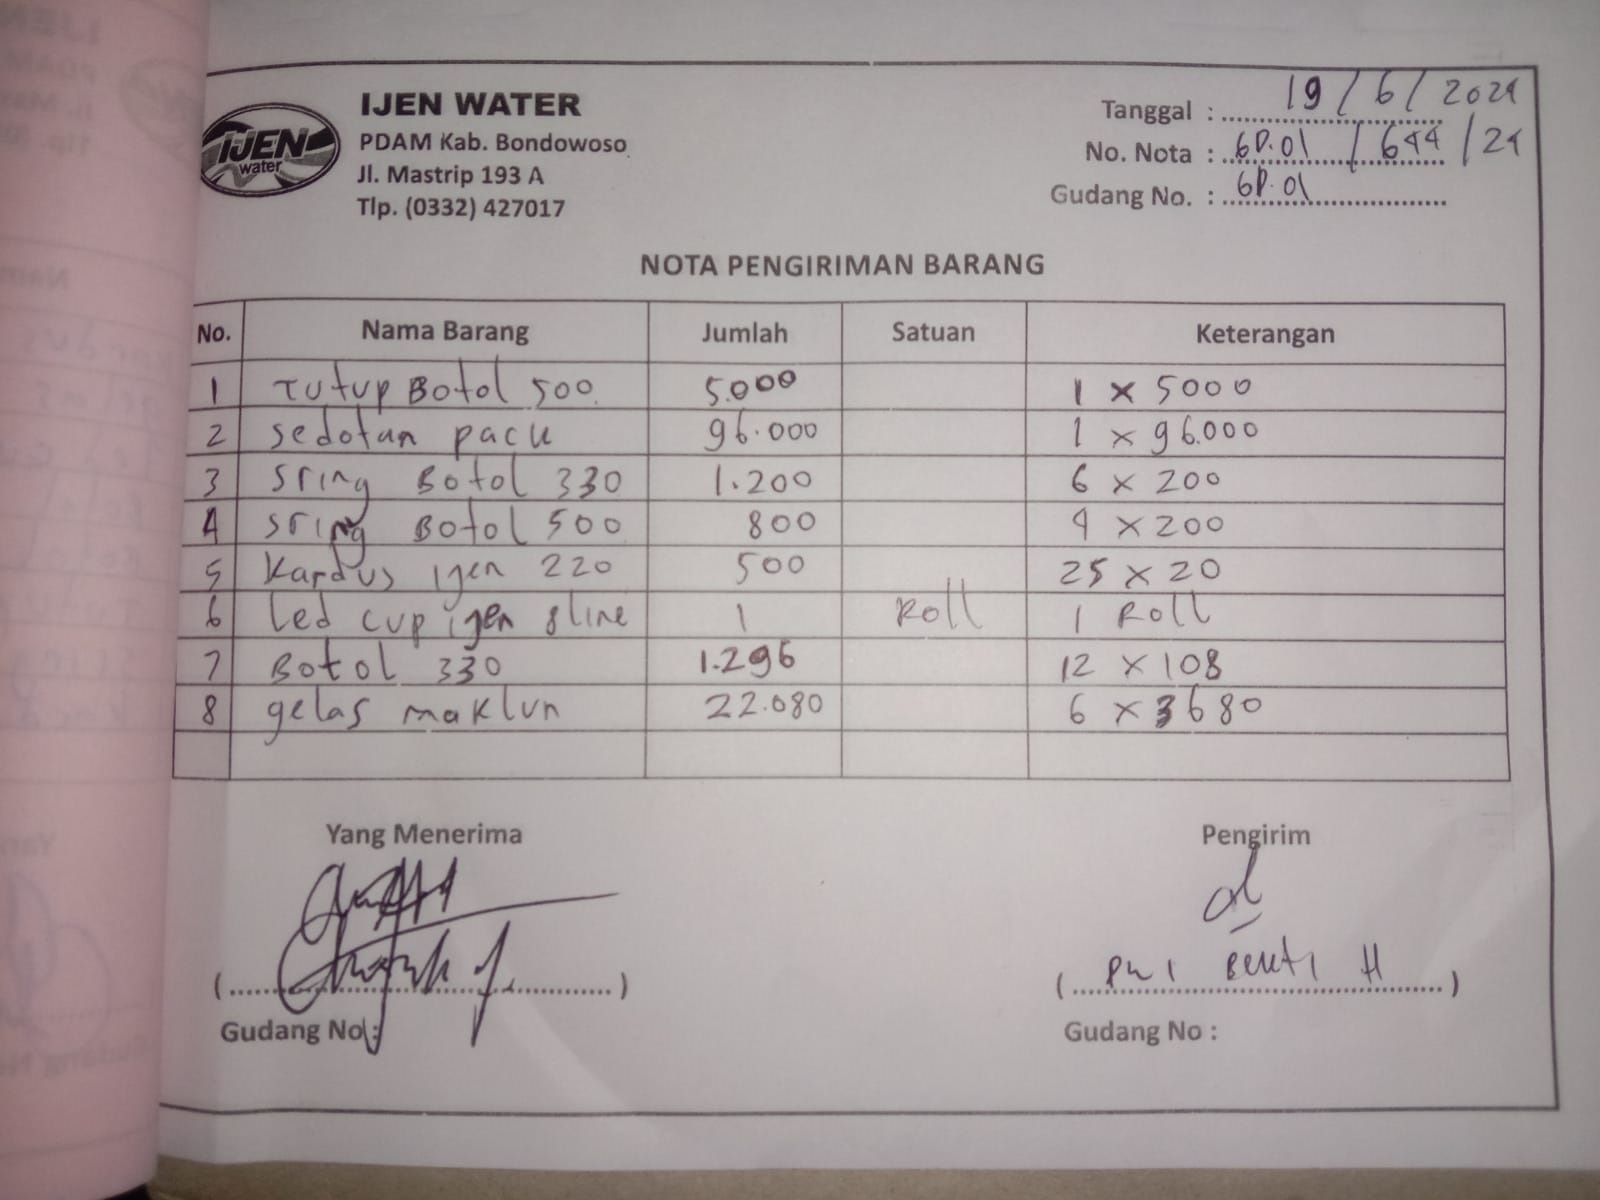 IJEN
water
IJEN WATER
PDAM Kab. Bondowoso
Jl. Mastrip 193 A
Tlp. (0332) 427017
Tanggal : 19/6/2024
No. Nota : GD.01 /644/24
Gudang No. : GD.01
NOTA PENGIRIMAN BARANG
No. Nama Barang Jumlah Satuan Keterangan
1 Tutup Botol 500 5.000 1 x 5000
2 Sedotan pack 96.000 1 x 96.000
3 Sring Botol 330 1.200 6 x 200
4 Sring Botol 500 800 4 x 200
5 Kardus Ijen 220 500 25 x 20
6 Led cup ijen 8 line 1 Roll 1 Roll
7 Botol 330 1.296 12 x 108
8 gelas maklun 22.080 6 x 3680
Yang Menerima Pengirim
(..........) (..........)
Gudang No : Gudang No :